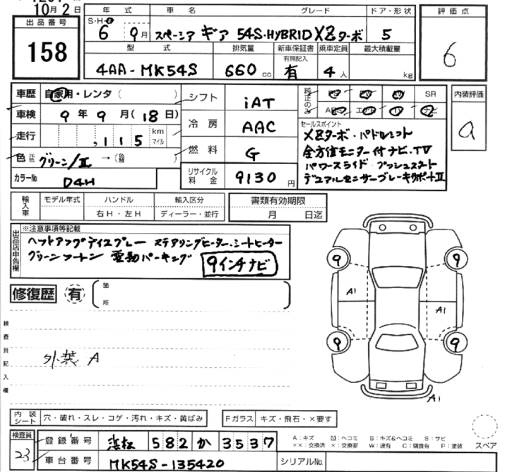 10月2日
出品番号 158
年式 S・H・R 6年9月
車名 スペーシア ギア 54S・HYBRID XZターボ
グレード
ドア・形状 5
評価点 6
型式 4AA-MK54S
排気量 660cc
新車保証書 有限記入 有
乗車定員 4人
最大積載量 kg
車歴 自家用・レンタ( )
シフト iAT
SR
内装評価 a
車検 9年9月(18日)
冷房 AAC
走行 ,115 km マイル
燃料 G
色 グリーン/II
カラーNo D4H
リサイクル料金 9130円
セールスポイント
XZターボ・パドルシフト
全方位モニター付ナビ、TV
パワースライド プッシュスタート
デュアルセンサーブレーキサポートII
輸入車 モデル年式 ハンドル 右H・左H 輸入区分 ディーラー・並行
書類有効期限 月 日迄
出品店申告欄 ※注意事項等記載
ヘッドアップディスプレー ステアリングヒーター、シートヒーター
グリーンツートン 電動パーキング 9インチナビ
修復歴 有 箇所
9 9
A1 A1
9 9
A1
検査員記入欄
外装 A
内装シート 穴・破れ・スレ・コゲ・汚れ・キズ・黄ばみ
Fガラス キズ・飛石・×要す
スペア
検査員 23
登録番号 浜松 582 か 3537
A:キズ U:ヘコミ B:キズ&ヘコミ S:サビ
××:交換済 ×:要交換 W:波有 C:腐食有 P:塗装
車台番号 MK54S-135420
シリアルNo.